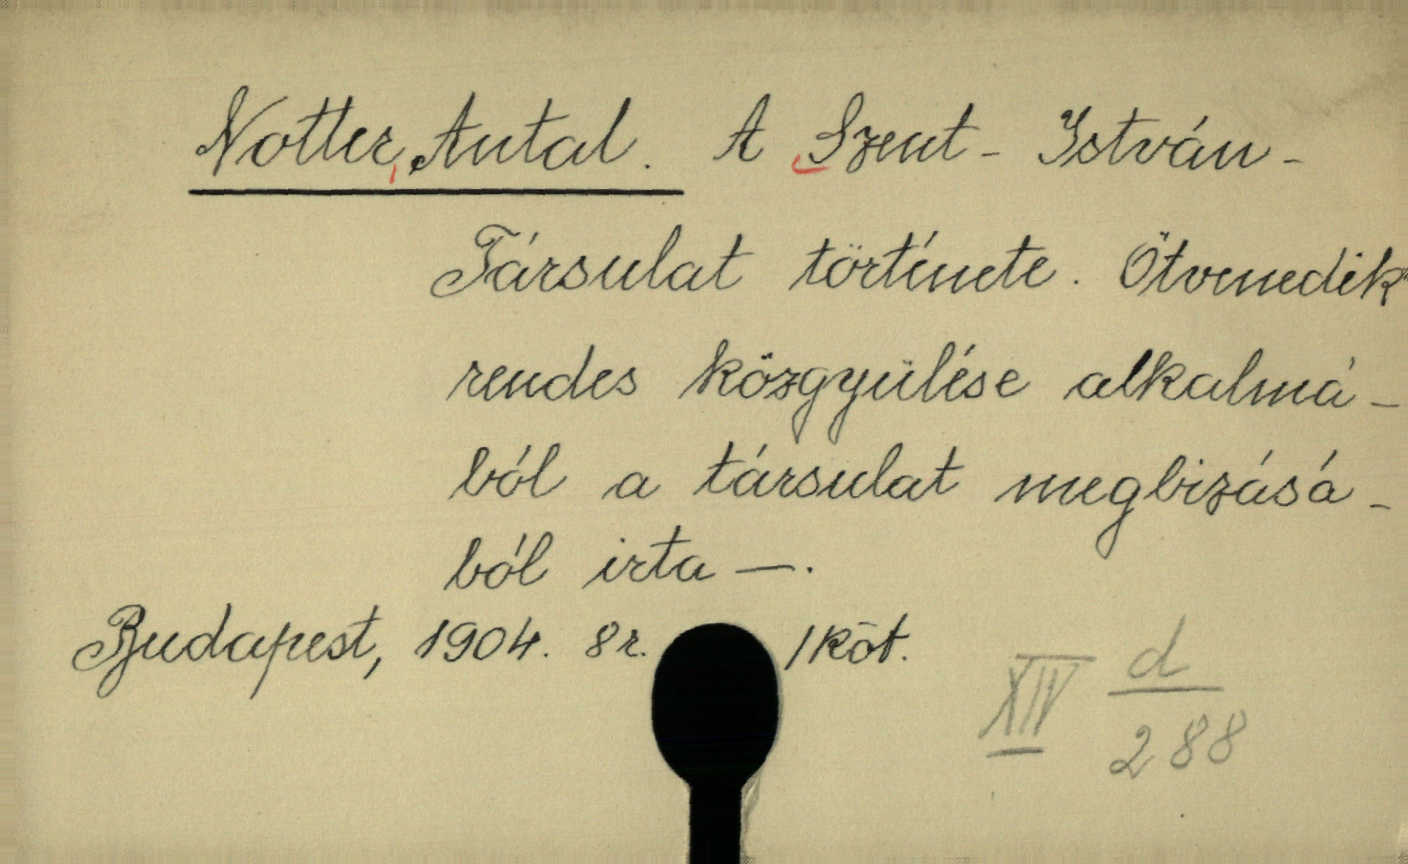 Notter, Antal. A Szent-István-
Társulat története. Ötvenedik
rendes közgyülése alkalmá-
ból a társulat megbizásá-
ból irta —.
Budapest, 1904. 8r. 1 köt.
XIV d/288